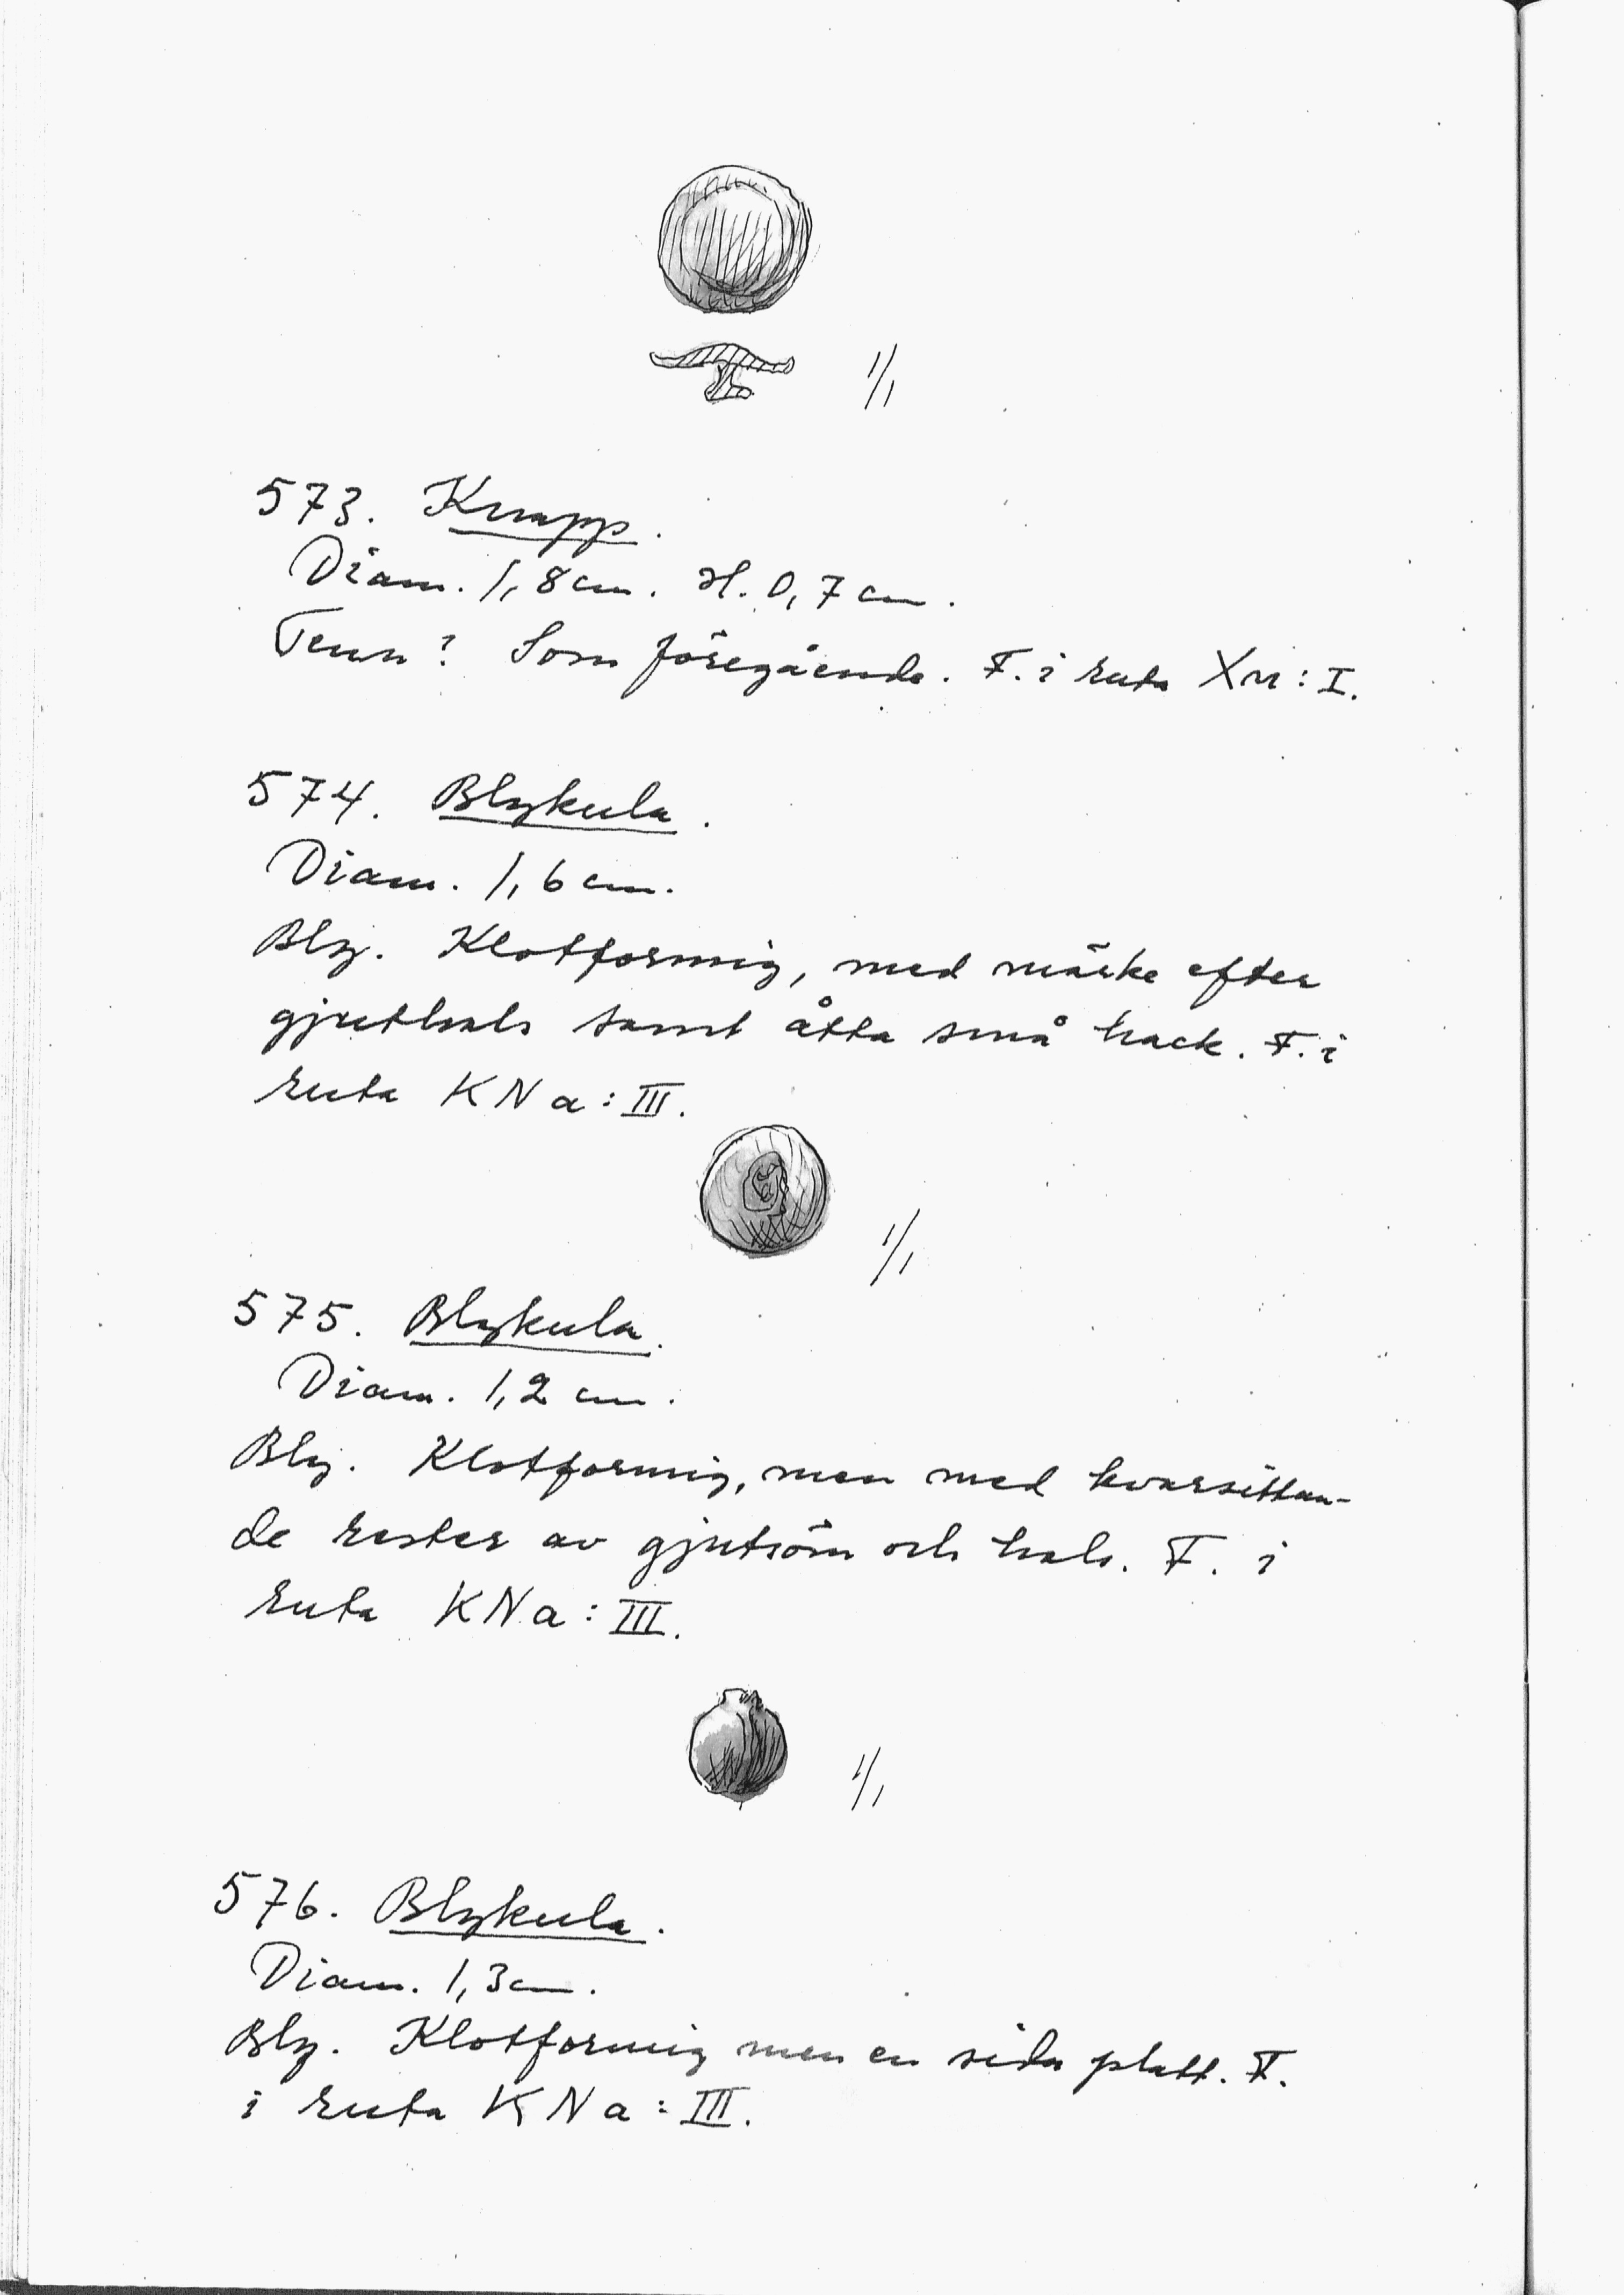 1/1
573. Knapp.
Diam. 1,8 cm. H. 0,7 cm.
Tenn? Som föregående. F. i ruta XVI: I.
574. Blykula.
Diam. 1,6 cm.
Bly. Klotformig, med märke efter
gjuthals samt åtta små hack. F. i
ruta KNa: III.
1/1
575. Blykula.
Diam. 1,2 cm.
Bly. Klotformig, men med kvarsittan-
de rester av gjutsöm och hals. F. i
ruta KNa: III.
1/1
576. Blykula.
Diam. 1,3 cm.
Bly. Klotformig men en sida platt. F.
i ruta KNa: III.